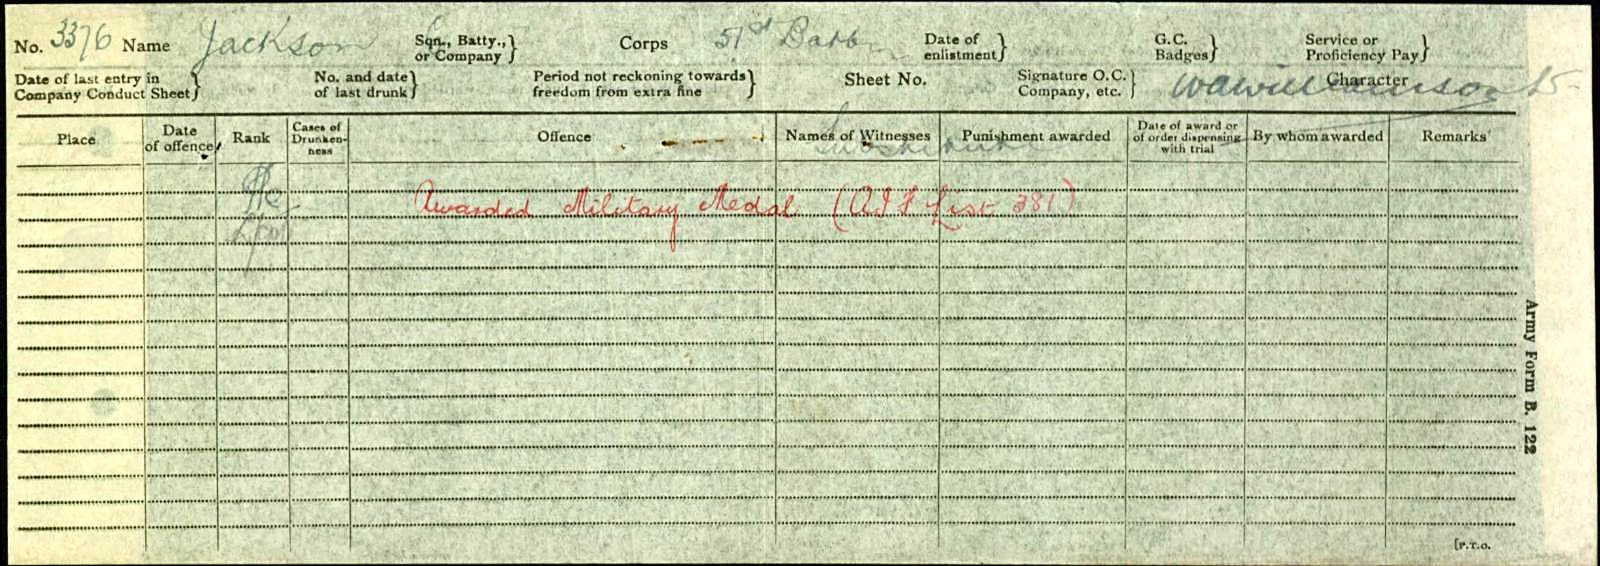 No. 3376 Name Jackson Sqn., Batty., or Company } Corps 51st Battn Date of enlistment } G.C. Badges } Service or Proficiency Pay }
Date of last entry in Company Conduct Sheet } No. and date of last drunk } Period not reckoning towards freedom from extra fine } Sheet No. Signature O.C. Company, etc. } Character
Place Date of offence Rank Cases of Drunken-ness Offence Names of Witnesses Punishment awarded Date of award or of order dispensing with trial By whom awarded Remarks
Pte
Awarded Military Medal (AIF List 381)
Army Form B. 122
[P.T.O.